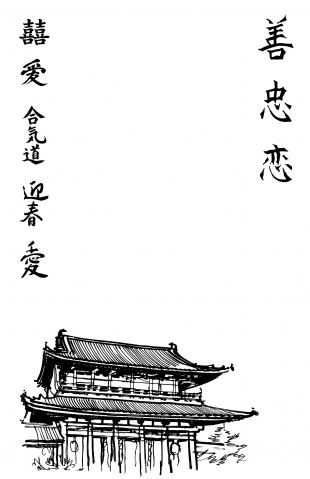 善
忠
恋
囍
愛
合気道
迎春
愛